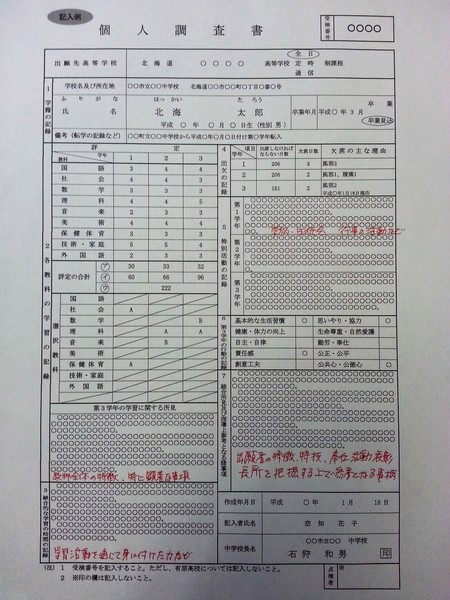 記入例
個人調査書
受検番号 ○○○○
出願先高等学校 北海道 ○○○○ 高等学校 全日 定時 通信 制課程
1 学籍の記録
学校名及び所在地 ○○市立○○中学校 北海道○○市○○町○丁目○番○号
ふりがな ほっかい たろう
氏名 北海 太郎
平成○年○月○日生(性別 男)
卒業年月 平成○年3月 卒業 卒業見込
備考(転学の記録など) ○○町立○○中学校から平成○年○月○日付け第○学年転入
2 各教科の学習の記録
評定
教科 学年 1 2 3
国語 3 4 3
社会 4 4 3
数学 3 3 3
理科 4 4 5
音楽 2 3 3
美術 4 3 4
保健体育 3 3 3
技術・家庭 5 5 4
外国語 2 3 3
評定の合計 ㋐ 30 33 32
㋑ 60 66 96
㋒ 222
選択教科
国語
社会 A
数学 B
理科 A
音楽 B
美術
保健体育 A
技術・家庭
外国語
第3学年の学習に関する所見
教科全体の特徴、特に顕著な事項
3 総合的な学習の時間の記録
学習活動を通じて身に付けた力など
4 出欠の記録
学年 項目 出席しなければならない日数 欠席日数 欠席の主な理由
1 206 3 風邪3
2 206 2 風邪1、腹痛1
3 161 2 風邪2 平成○年1月18日現在
5 特別活動の記録
第1学年
第2学年
第3学年
6 第3学年の行動の記録
基本的な生活習慣 ○ 思いやり・協力 ○
健康・体力の向上 生命尊重・自然愛護
自主・自律 勤労・奉仕
責任感 ○ 公正・公平
創意工夫 公共心・公徳心 ○
出願者の特徴、特技、奉仕活動、表彰
長所を把握する上で参考となる事柄
作成年月日 平成○年1月18日
記入者氏名 奈知 花子
中学校長名 ○○市立○○中学校
石狩 和男 印
(注) 1 受検番号を記入すること。ただし、有朋高校については記入しないこと。
2 ※印の欄は記入しないこと。
点検者 ※